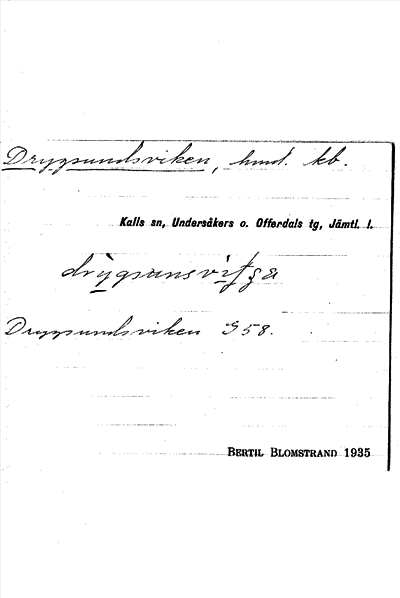 Drygsundsviken, hmd. kb.
Kalls sn, Undersåkers o. Offerdals tg, Jämtl. l.
Drygsundsviken G 58.
BERTIL BLOMSTRAND 1935